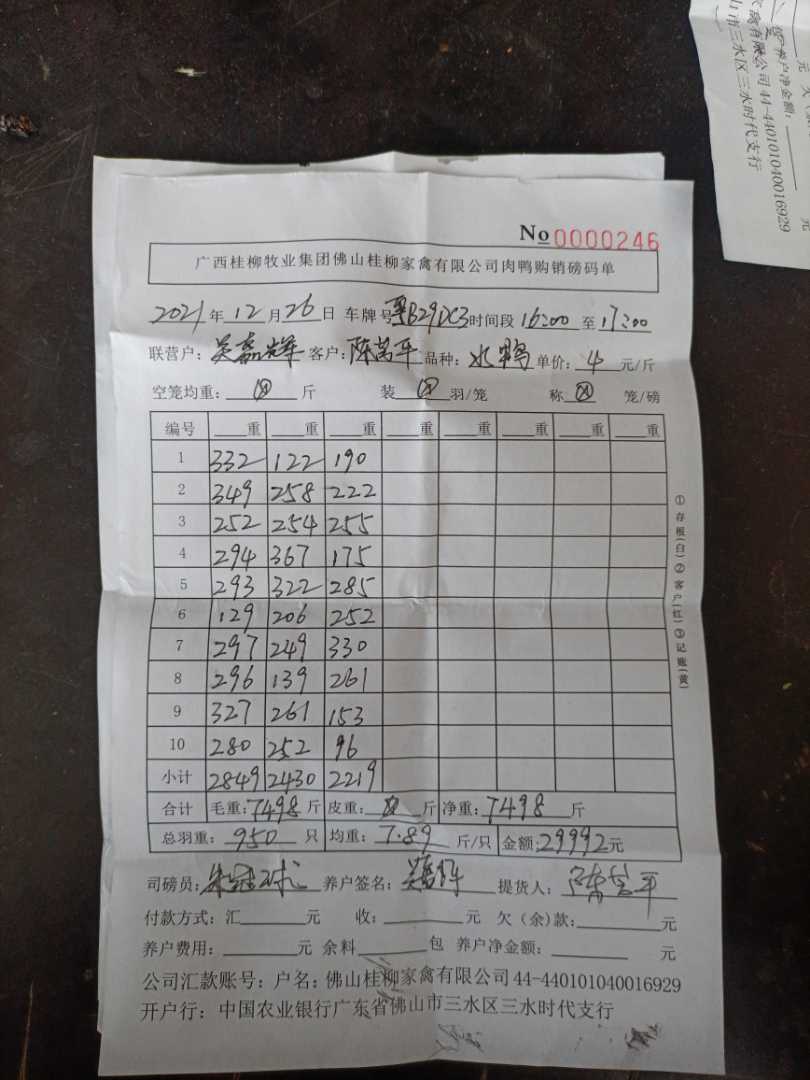 元 欠
养户净金额：
元
家禽有限公司44-440101040016929
山市三水区三水时代支行
No 0000246
广西桂柳牧业集团佛山桂柳家禽有限公司肉鸭购销磅码单
2021年12月26日 车牌号 粤B29DC3 时间段 16:00 至 17:00
联营户： 吴嘉辉 客户： 陈万平 品种： 水鸭 单价： 4 元/斤
空笼均重： 斤 装 羽/笼 称 笼/磅
编号 重 重 重 重 重 重 重 重
1 332 122 190
2 349 258 222
3 252 254 255
4 294 367 175
5 293 322 285
6 129 206 252
7 297 249 330
8 296 139 261
9 327 261 153
10 280 252 96
小计 2849 2430 2219
合计 毛重：7498 斤 皮重： 斤 净重：7498 斤
总羽重： 950 只 均重： 7.89 斤/只 金额：29992元
司磅员： 养户签名： 提货人：
付款方式：汇 元 收： 元 欠（余）款： 元
养户费用： 元 余料 包 养户净金额： 元
公司汇款账号：户名：佛山桂柳家禽有限公司44-440101040016929
开户行：中国农业银行广东省佛山市三水区三水时代支行
①存根(白)②客户(红)③记账(黄)